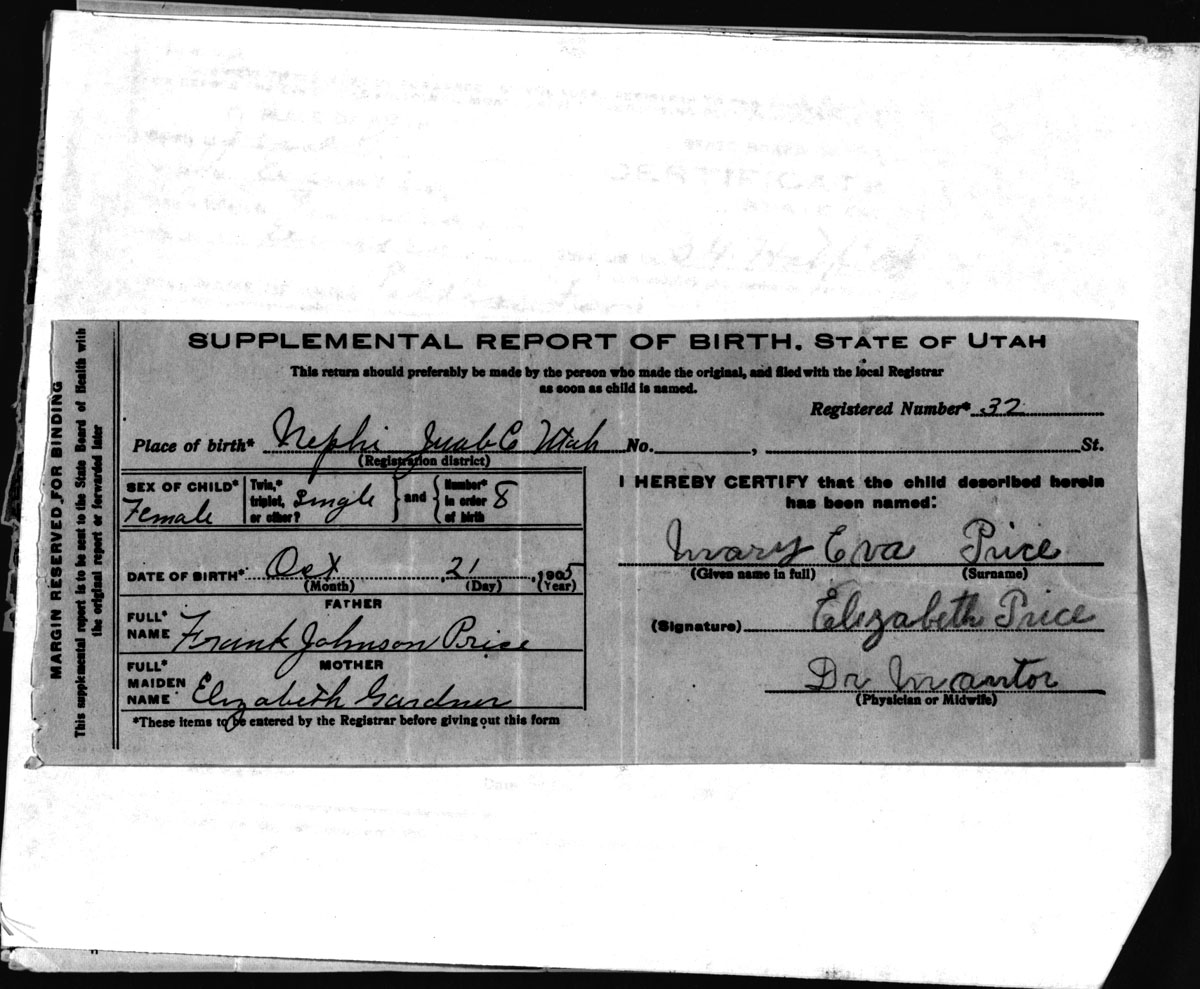 SUPPLEMENTAL REPORT OF BIRTH. STATE OF UTAH
This return should preferably be made by the person who made the original, and filed with the local Registrar
as soon as child is named.
Registered Number* 32
Place of birth* Nephi Juab C Utah No. , St.
(Registration district)
SEX OF CHILD* Female
Twin,* triplet, or other? Single
and
Number* in order of birth 8
DATE OF BIRTH* Oct 21, 1905
(Month) (Day) (Year)
FATHER
FULL* NAME Frank Johnson Price
MOTHER
FULL* MAIDEN NAME Elizabeth Gardner
*These items to be entered by the Registrar before giving out this form
I HEREBY CERTIFY that the child described herein
has been named:
Mary Eva Price
(Given name in full) (Surname)
(Signature) Elizabeth Price
Dr Mantor
(Physician or Midwife)
MARGIN RESERVED FOR BINDING
This supplemental report is to be sent to the State Board of Health with
the original report or forwarded later